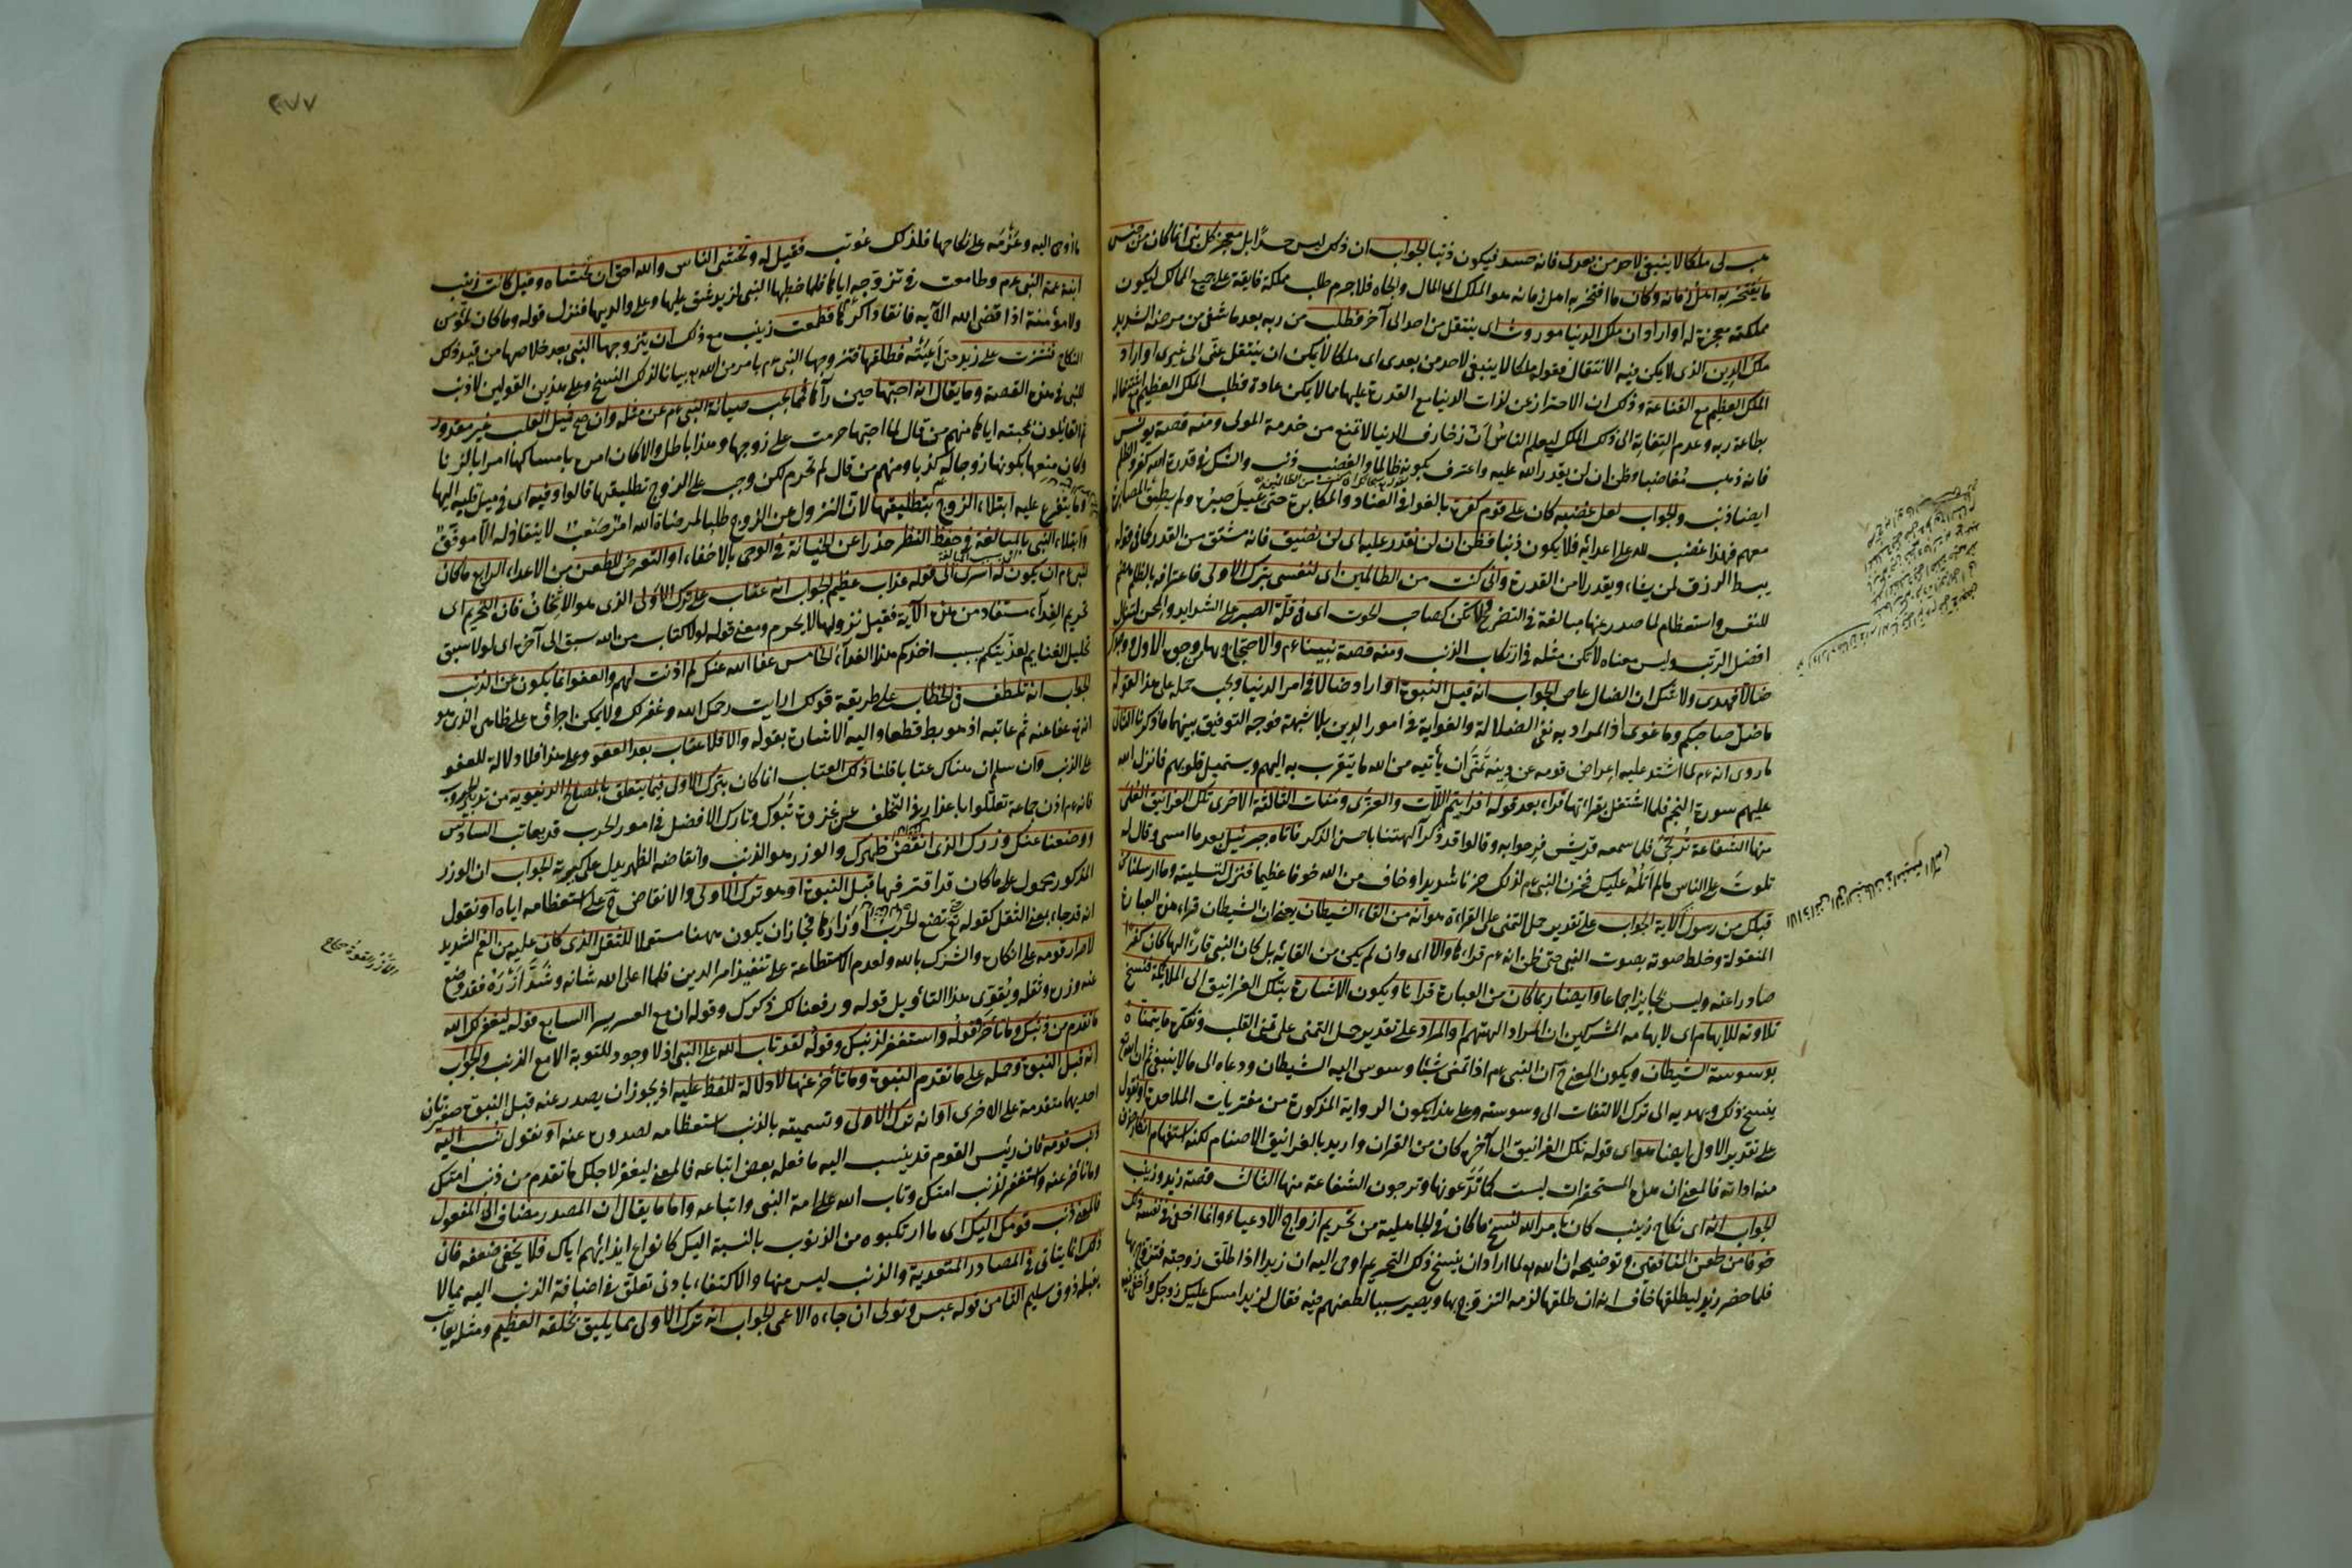 هب لى ملكا لا ينبغى لاحد من بعدى فانه حسد فيكون ذنبا الجواب ان ذلك ليس حسدا بل معجز كل نبى انما كان من جنس
ما يفتخر به اهل زمانه وكان ما افتخر به اهل زمانه هو الملك اى المال والجاه فلا جرم طلب مملكة فايقة على جميع الممالك ليكون
مملكته معجزة له او اراد ان ملك الدنيا موروث اى ينتقل من احد الى آخر فطلب من ربه بعد ما شفى من مرضه الشديد
ملك الدين الذى لا يمكن فيه الانتقال فقوله ملكا لا ينبغى لاحد من بعدى اى ملكا لا يمكن ان ينتقل عنى الى غيرى او اراد
الملك العظيم مع القناعة وذلك ان الاحتراز عن لذات الدنيا مع القدرة عليها مما لا يمكن عادة فطلب الملك العظيم مع اشتغاله
بطاعة ربه وعدم التفاته الى ذلك الملك ليعلم الناس ان زخارف الدنيا لا تمنع من خدمة المولى ومنه قصة يونس
فانه ذهب مغاضبا وظن ان لن يقدر الله عليه واعترف بكونه ظالما والغضب ذنب والشك فى قدرة الله كفر والظلم
ايضا ذنب والجواب لعل غضبه كان على قوم كفرة بالغوا فى العناد والمكابرة حتى عيل صبره ولم يطق المصابرة
معهم فهذا غضب لله على اعدائه فلا يكون ذنبا فظن ان لن نقدر عليه اى لن نضيق فانه مشتق من القدر كما فى قوله
يبسط الرزق لمن يشاء ويقدر لا من القدرة وانى كنت من الظالمين اى لنفسى بترك الاولى فاعترافه بالظلم هضم
للنفس واستعظام لما صدر عنها مبالغة فى التضرع ولا تكن كصاحب الحوت اى فى قلة الصبر على الشدايد والمحن لتنال
افضل الرتب وليس معناه لا تكن مثله فى ارتكاب الذنب ومنه قصة نبينا عم والاحتجاج بها من وجوه الاول ووجدك
ضالا فهدى ولا شك ان الضال عاص الجواب انه قبل النبوة او اراد ضالا فى امر الدنيا ويجب حمله على هذا لقوله
ما ضل صاحبكم وما غوى اذ المراد به نفى الضلالة والغواية فى امور الدين بلا شبهة فوجه التوفيق بينهما ما ذكرنا الثانى
ما روى انه عم لما اشتد عليه اعراض قومه عن دينه تمنى ان يأتيه من الله ما يتقرب به اليهم ويستميل قلوبهم فانزل الله
عليهم سورة النجم فلما اشتغل بقراءتها قراء بعد قوله افرايتم اللات والعزى ومنات الثالثة الاخرى تلك الغرانيق العلى
منها الشفاعة ترتجى فلما سمعه قريش فرحوا به وقالوا قد ذكر آلهتنا باحسن الذكر فاتاه جبرئيل بعد ما امسى وقال له
تلوت على الناس ما لم اتله عليك فحزن النبى عم لذلك حزنا شديدا وخاف من الله خوفا عظيما فنزل لتسليته وما ارسلنا من
قبلك من رسول الآية الجواب على تقدير حمل التمنى على القراءة هو انه من القاء الشيطان يعنى ان الشيطان قراء هذه العبارة
المنقولة وخلط صوته بصوت النبى حتى ظن انه عم قراءها والا اى وان لم يكن من القائه بل كان النبى قارئا لها كان كفرا
صادرا عنه وليس بجايز اجماعا وايضا ربما كان هذه العبارة قرانا ويكون الاشارة بتلك الغرانيق الى الملائكة فنسخ
تلاوته للايهام اى لايهامه المشركين ان المراد الهتهم والمراد على تقدير حمل التمنى على تمنى القلب وتفكره ما يتمناه
بوسوسة الشيطان ويكون المعنى ح ان النبى عم اذا تمنى شيئا وسوس اليه الشيطان ودعاه الى ما لا ينبغى ثم ان الله تع
ينسخ ذلك ويهديه الى ترك الالتفات الى وسوسته وعلى هذا يكون الرواية المذكورة من مفتريات الملاحدة او نقول
على تقدير الاول ايضا هو اى قوله تلك الغرانيق الى آخره كان من القران واريد بالغرانيق الاصنام لكنه استفهام انكار حذف
منه اداته فالمعنى ان هذه المستحقرات ليست كما تدعونها وترجون الشفاعة منها الثالث قصة زيد وزينب
الجواب انه اى نكاح زينب كان بامر الله لنسخ ما كان فى الجاهلية من تحريم ازواج الادعياء وانما اخفى فى نفسه ذلك
خوفا من طعن المنافقين وتوضيحه ان الله تع لما اراد ان ينسخ ذلك التحريم اوحى اليه ان زيدا اذا طلق زوجته فتزوج بها
فلما حضر زيد ليطلقها خاف انه ان طلقها لزمه التزوج بها ويصير سببا لطعنهم فيه فقال لزيد امسك عليك زوجك واخفى فى نفسه
٢٧٧
ما اوحى اليه وعزمه على نكاحها فلذلك عوتب فقيل له وتخشى الناس والله احق ان تخشاه وقيل كانت زينب
ابنة عمة النبى عم وطامعت فى تزوجه اياها فلما خطبها النبى لزيد شق عليها وعلى والديها فنزل قوله وما كان لمؤمن
ولا مؤمنة اذا قضى الله الآية فانقادا كرها فطمعت زينب مع ذلك ان يتزوجها النبى بعد خلاصها من قيد ذلك
النكاح فنشزت على زيد حتى اعيته فطلقها فتزوجها النبى عم بامر من الله تع بيانا لذلك النسخ وعلى هذين القولين لا ذنب
للنبى فى هذه القصة وما يقال انه احبها حين رآها فمما يجب صيانة النبى عم عن مثله وان صح فميل القلب غير مقدور
ثم القايلون بمحبته اياها منهم من قال لما احبها حرمت على زوجها وهذا باطل والا كان امره بامساكها امرا بالزنا
وكان منعها بكونها زوجا له كذبا ومنهم من قال لم تحرم لكن وجب على الزوج تطليقها قالوا وفيه اى فى ميل قلبه اليها
وما يتفرع عليه ابتلاء الزوج بتطليقها لان النزول عن الزوج طلبا لمرضاة الله امر صعب لا ينقاد له الا موفق
وابتلاء النبى بالمبالغة فى حفظ النظر حذرا عن الخيانة فى الوحى بالاخفاء او التعرض للطعن من الاعداء الرابع ما كان
لنبى ان يكون له اسرى الى قوله عذاب عظيم الجواب انه عتاب على ترك الاولى الذى هو الاثخان فان التحريم اى
تحريم الفداء مستفاد من هذه الآية فقبل نزولها لا يحرم ومعنى قوله لولا كتاب من الله سبق الى آخره اى لولا سبق
تحليل الغنايم لعذبتكم بسبب اخذكم هذا الفداء الخامس عفا الله عنك لم اذنت لهم والعفو انما يكون عن الذنب
الجواب انه تلطف فى الخطاب على طريقة قولك ارايت رحمك الله وغفر لك ولا يمكن اجراؤه على ظاهره الذى هو
انه تع عفا عنه ثم عاتبه اذ هو بط قطعا واليه الاشارة بقوله والا فلا عتاب بعد العفو وعلى هذا فلا دلالة للعفو
على الذنب وان سلم ان هناك عتابا قلنا ذلك العتاب انما كان بترك الاولى فيما يتعلق بالمصالح الدنيوية من تدبير الحروب
فانه عم اذن جماعة تعللوا باعذار فى التخلف عن غزوة تبوك وتارك الافضل فى امور الحرب قد يعاتب السادس
ووضعنا عنك وزرك الذى انقض ظهرك والوزر هو الذنب وانقاضه الظهر يدل على كبيرته الجواب ان الوزر
المذكور محمول على ما كان قد اقترفها قبل النبوة او هو ترك الاولى والانقاض ح على استعظامه اياه او نقول
انه قد جاء بمعنى الثقل كقوله تع تضع الحرب اوزارها فجاز ان يكون ههنا مستعملا للثقل الذى كان عليه من الغم الشديد
لاصرار قومه على انكاره والشرك بالله ولعدم الاستطاعة على تنفيذ امر الدين فلما اعلى الله شانه وشد ازره فقد وضع
عنه وزره وثقله ويقوى هذا التاويل قوله ورفعنا لك ذكرك وقوله ان مع العسر يسرا السابع قوله ليغفر لك الله
ما تقدم من ذنبك وما تأخر وقوله واستغفر لذنبك وقوله لقد تاب الله على النبى اذ لا وجود للتوبة الا مع الذنب والجواب
انه قبل النبوة وحمله على ما تقدم النبوة وما تأخر عنها لا دلالة للفظ عليه اذ يجوز ان يصدر عنه قبل النبوة صغيرتان
احديهما متقدمة على الاخرى او انه ترك الاولى وتسميته بالذنب استعظاما لصدوره عنه او نقول نسب اليه
ذنب قومه فان رئيس القوم قد ينسب اليه ما فعله بعض اتباعه فالمعنى ليغفر لاجلك ما تقدم من ذنب امتك
وما تأخر عنه واستغفر لذنب امتك وتاب الله على امة النبى واتباعه واما ما يقال ان المصدر مضاف الى المفعول
فالمعنى ذنب قومك اليك اى ما ارتكبوه من الذنوب بالنسبة اليك كانواع ايذائهم اياك فلا يخفى ضعفه فان
ذلك انما يتاتى فى المصادر المتعدية والذنب ليس منها والاكتفاء بادنى تعلق فى اضافة الذنب اليه مما لا
يقبله ذوق سليم الثامن قوله عبس وتولى ان جاءه الاعمى الجواب انه ترك الاولى مما يليق بخلقه العظيم ومثله يعاتب
الازر القوة صحاح